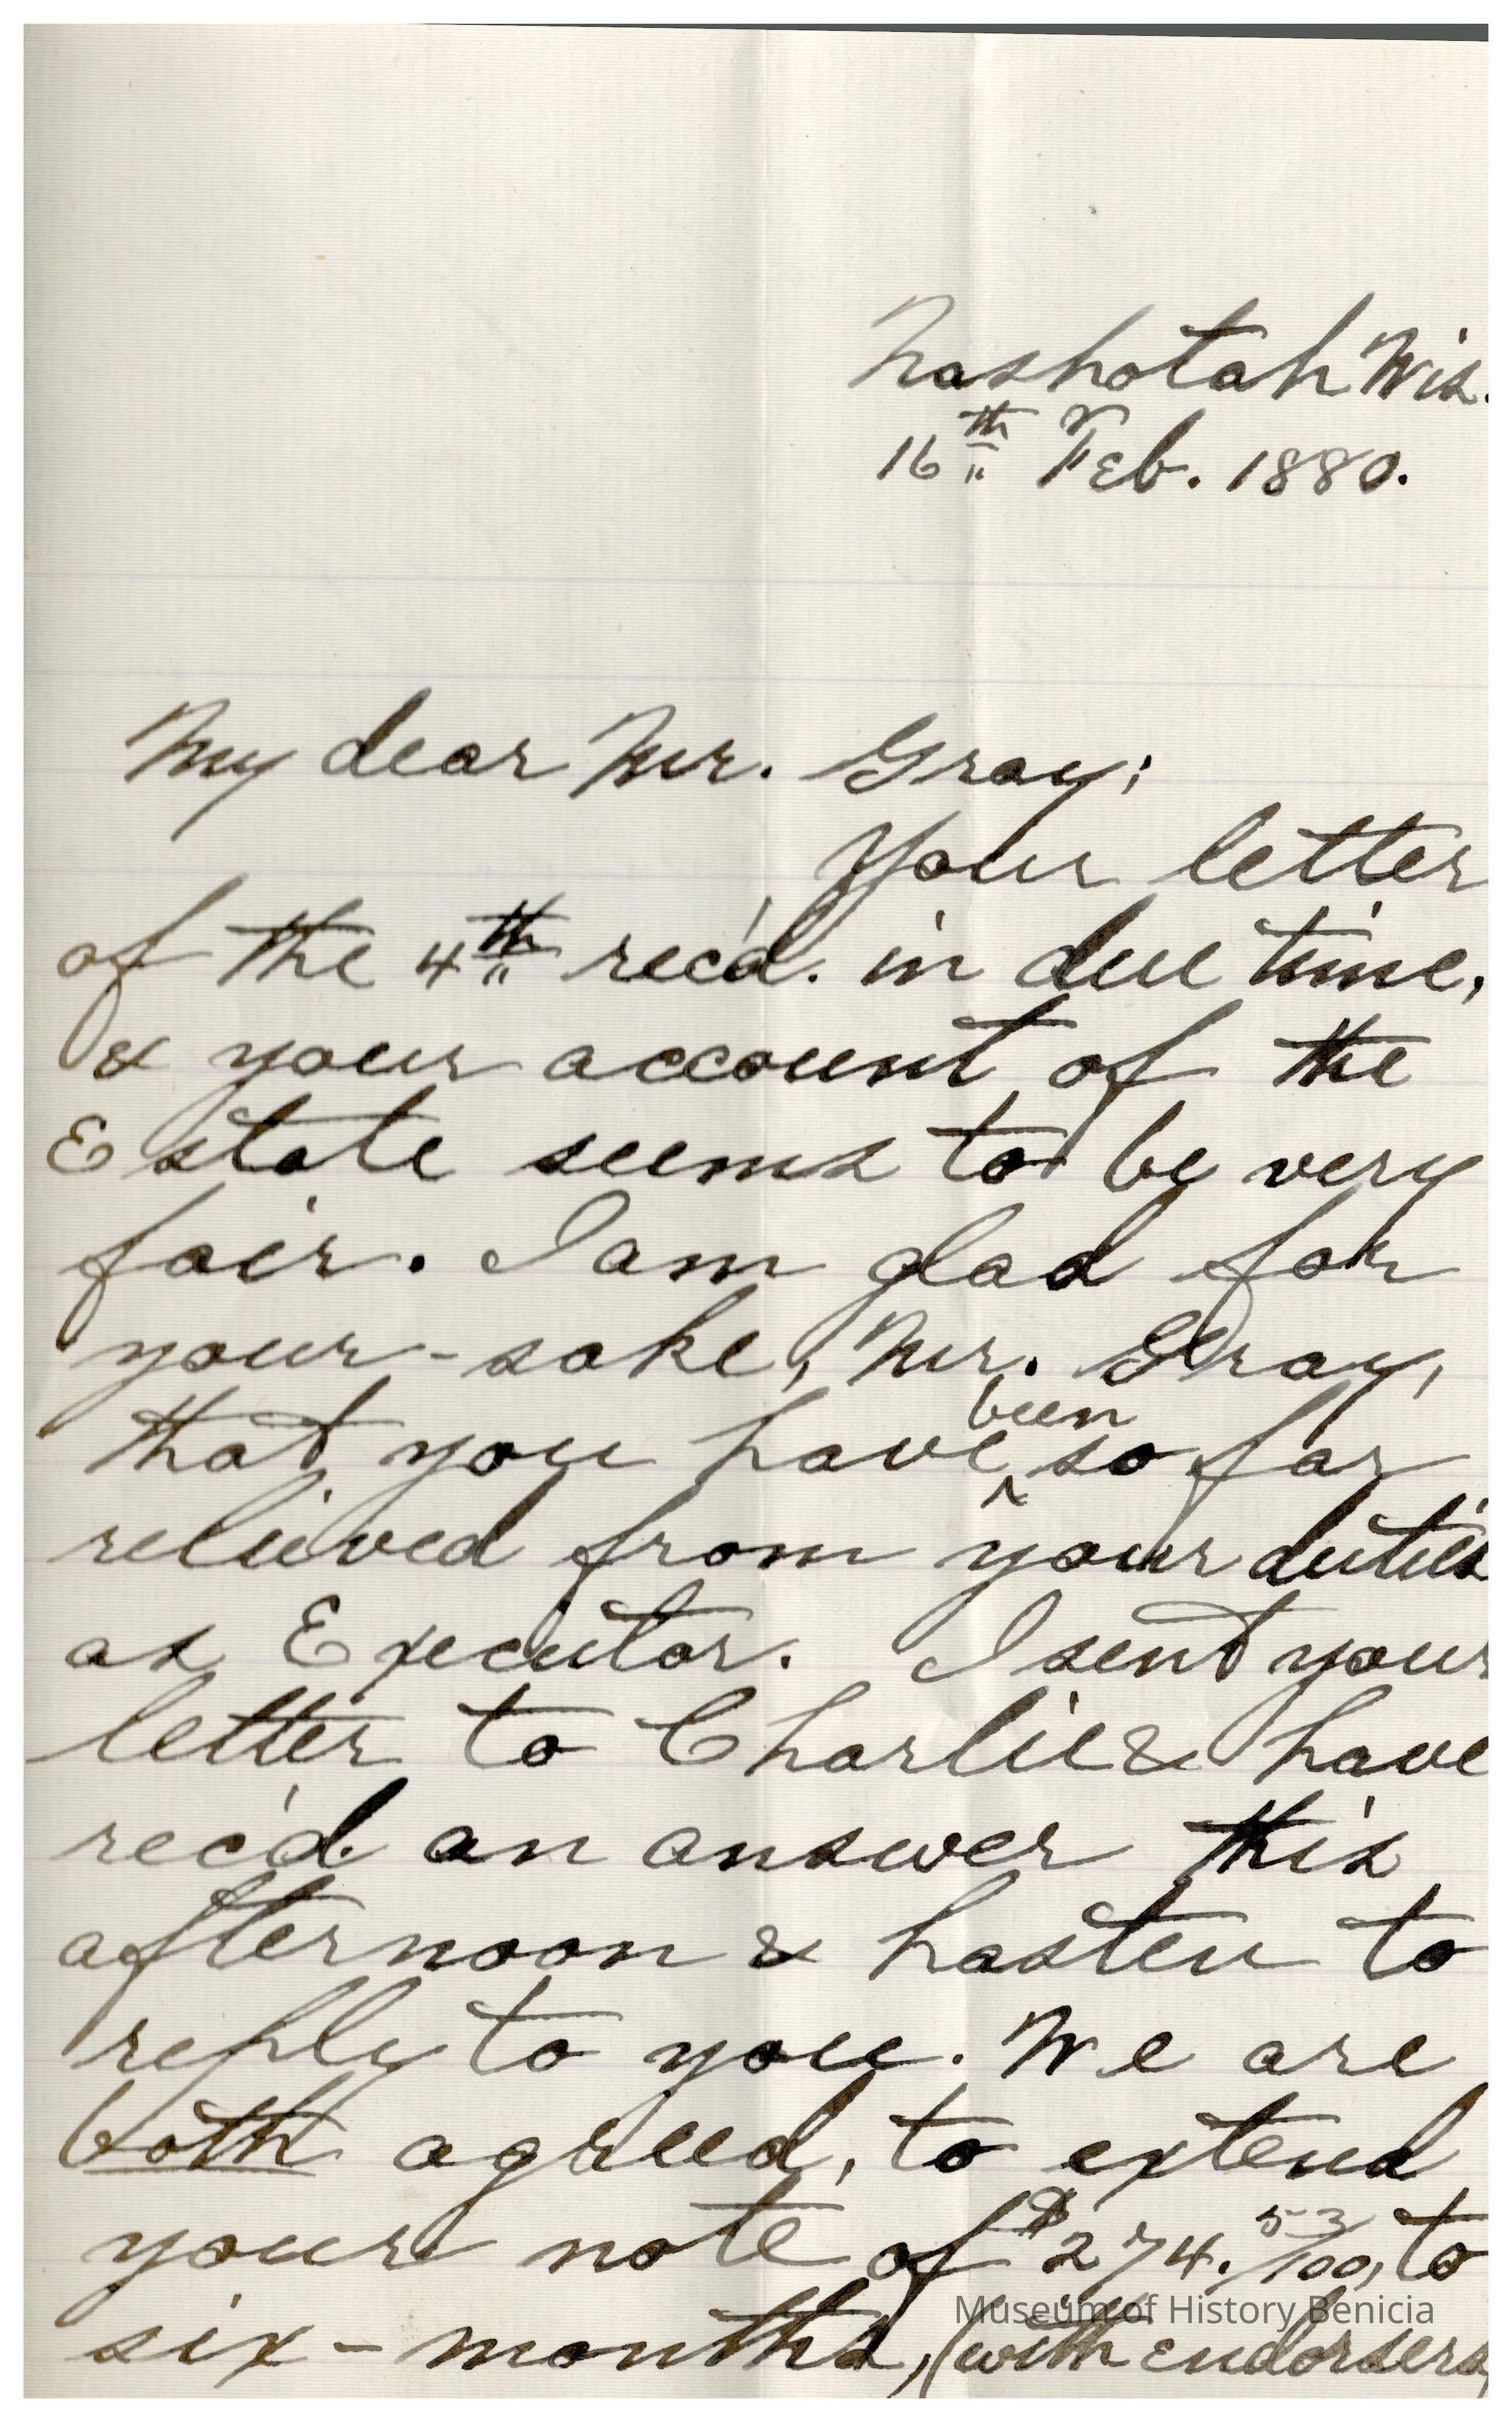 Nashotah Wis.
16th Feb. 1880.
My dear Mr. Gray;
Your letter
of the 4th rec'd. in due time,
& your account of the
Estate seems to be very
fair. I am glad for
your-sake, Mr. Gray,
that you have been so far
relieved from your duties
as Executor. I sent your
letter to Charlie & have
rec'd. an answer this
afternoon & hasten to
reply to you. We are
both agreed, to extend
your note of $274.53/100, to
six-months, (with endorsers,
Museum of History Benicia